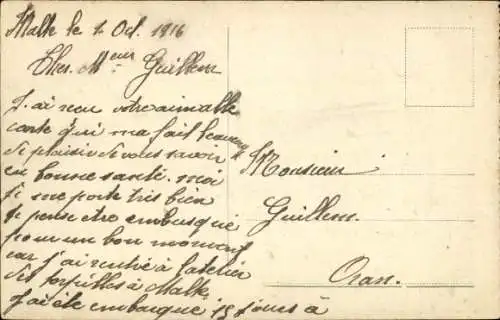 Malte le 2 Oct. 1916
Cher Meur Guillem
J'ai reçu votre aimable
carte qui ma fait beaucoup
de plaisir de vous savoir
en bonne santé. moi
je me porte tres bien
je pense etre embusqué
pour un bon moment
car j'ai rentré à l'atelier
des torpilles à Malte.
J'ai été embarqué 15 jours à
Monsieur
Guillem
Oran.